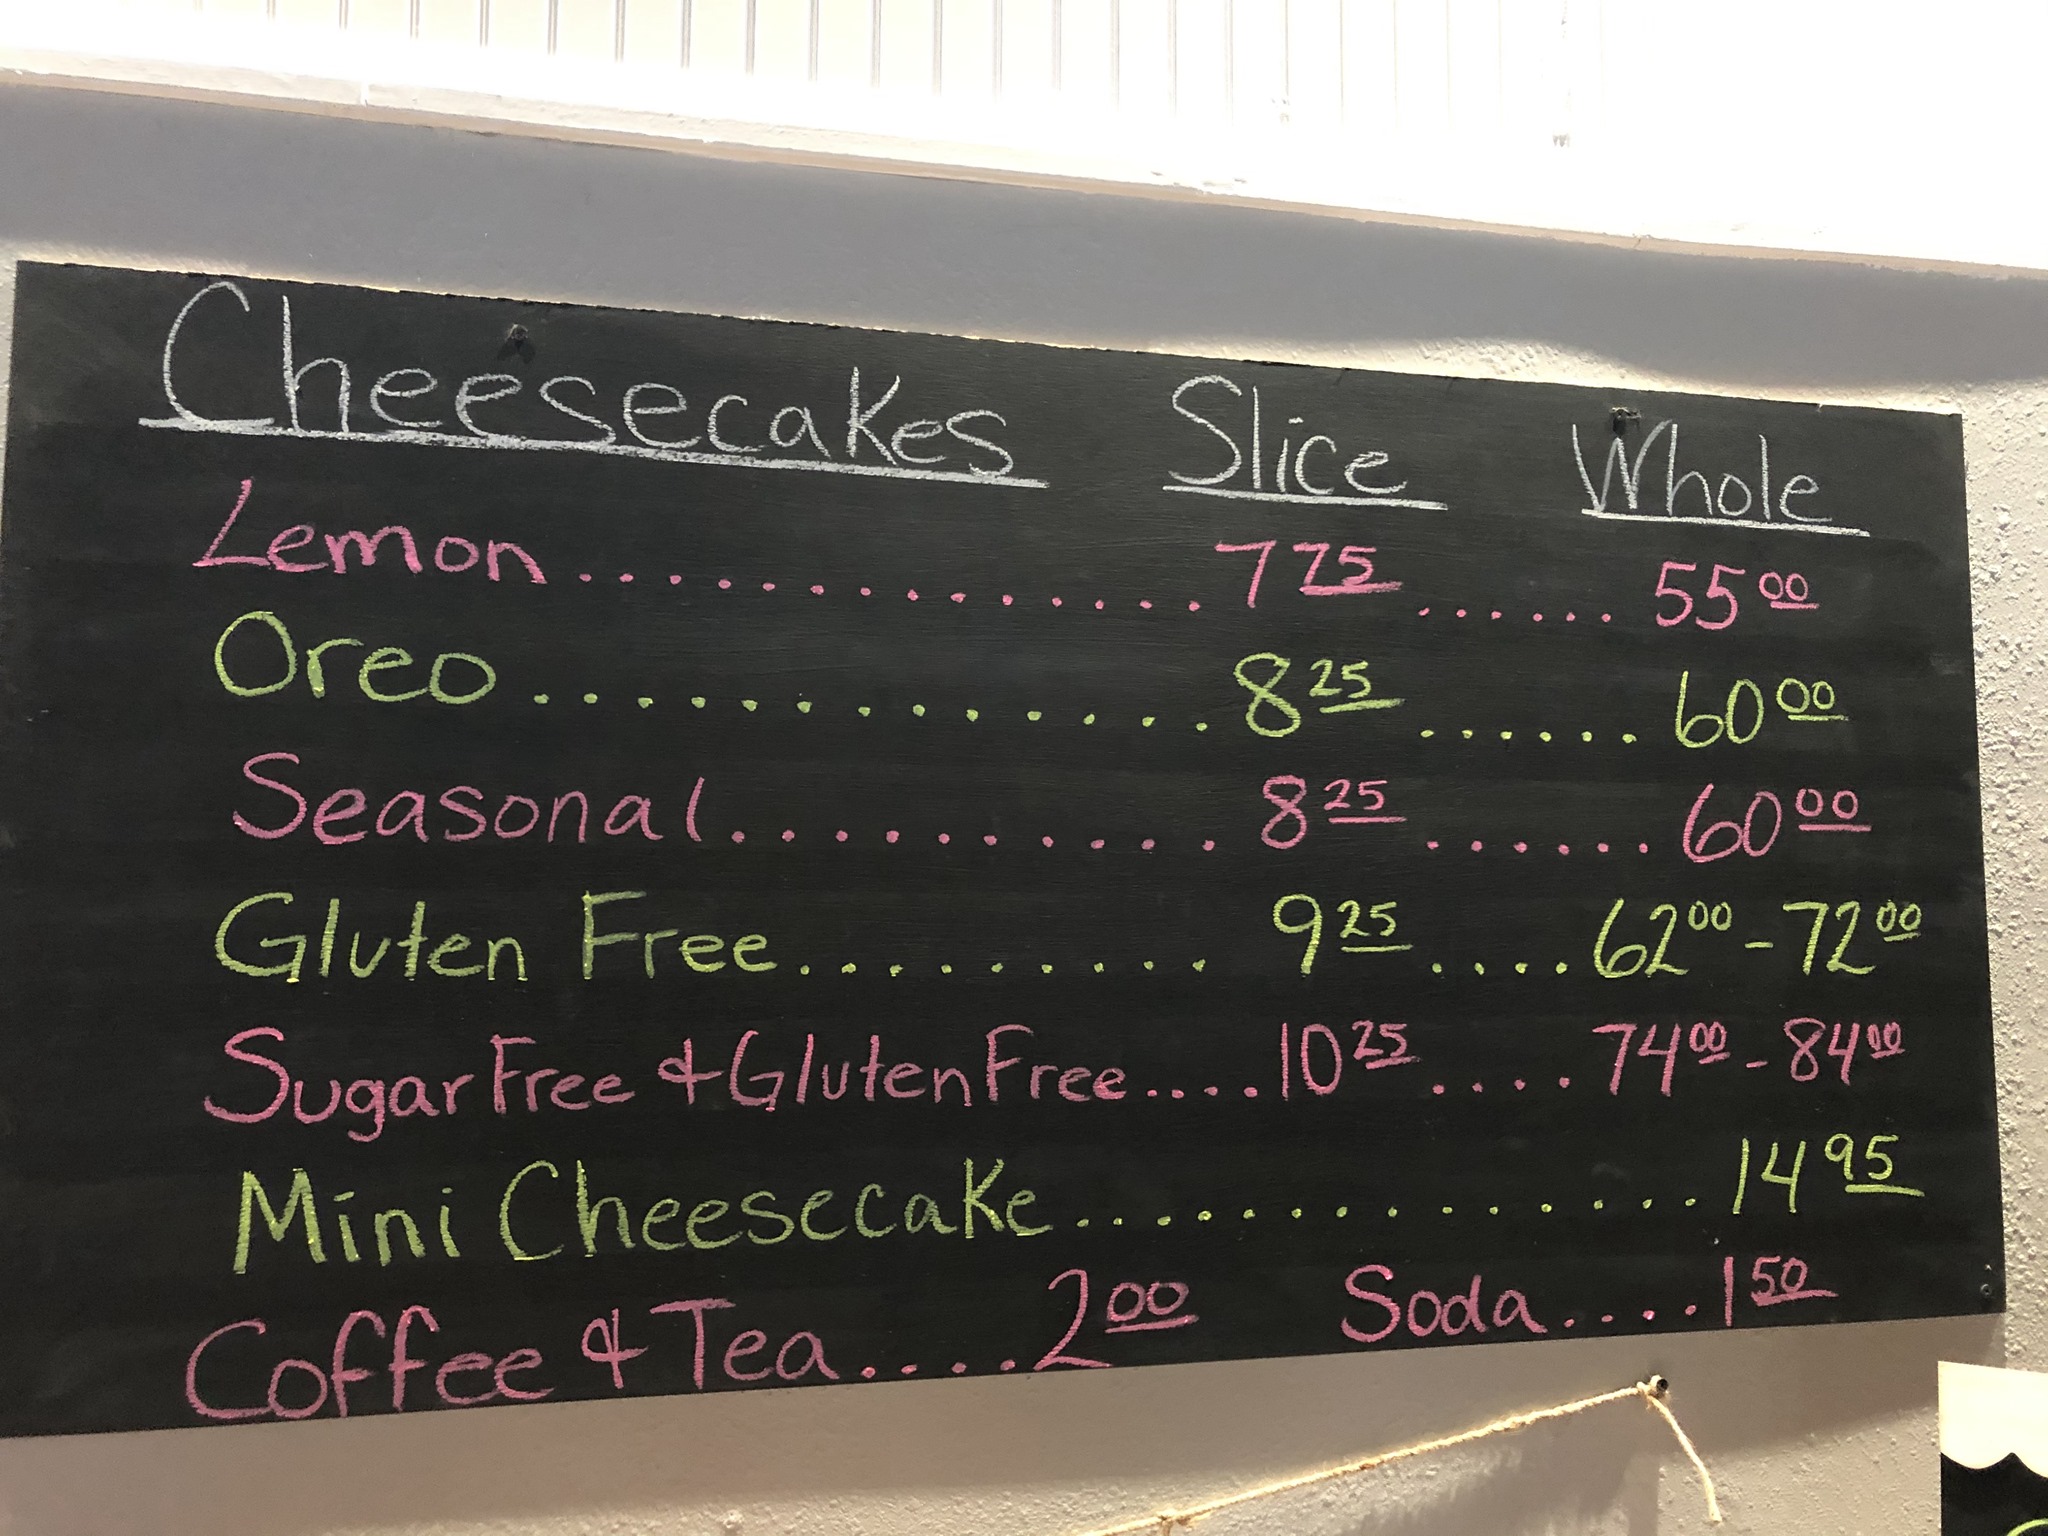 Cheesecakes Slice Whole
Lemon.............. 7 75 ...... 55 00
Oreo.............. 8 25 ...... 60 00
Seasonal........... 8 25 ...... 60 00
Gluten Free.......... 9 25 .... 62 00 - 72 00
Sugar Free & Gluten Free.... 10 25 .... 74 00 - 84 00
Mini Cheesecake............... 14 95
Coffee & Tea.... 2 00 Soda.... 1 50